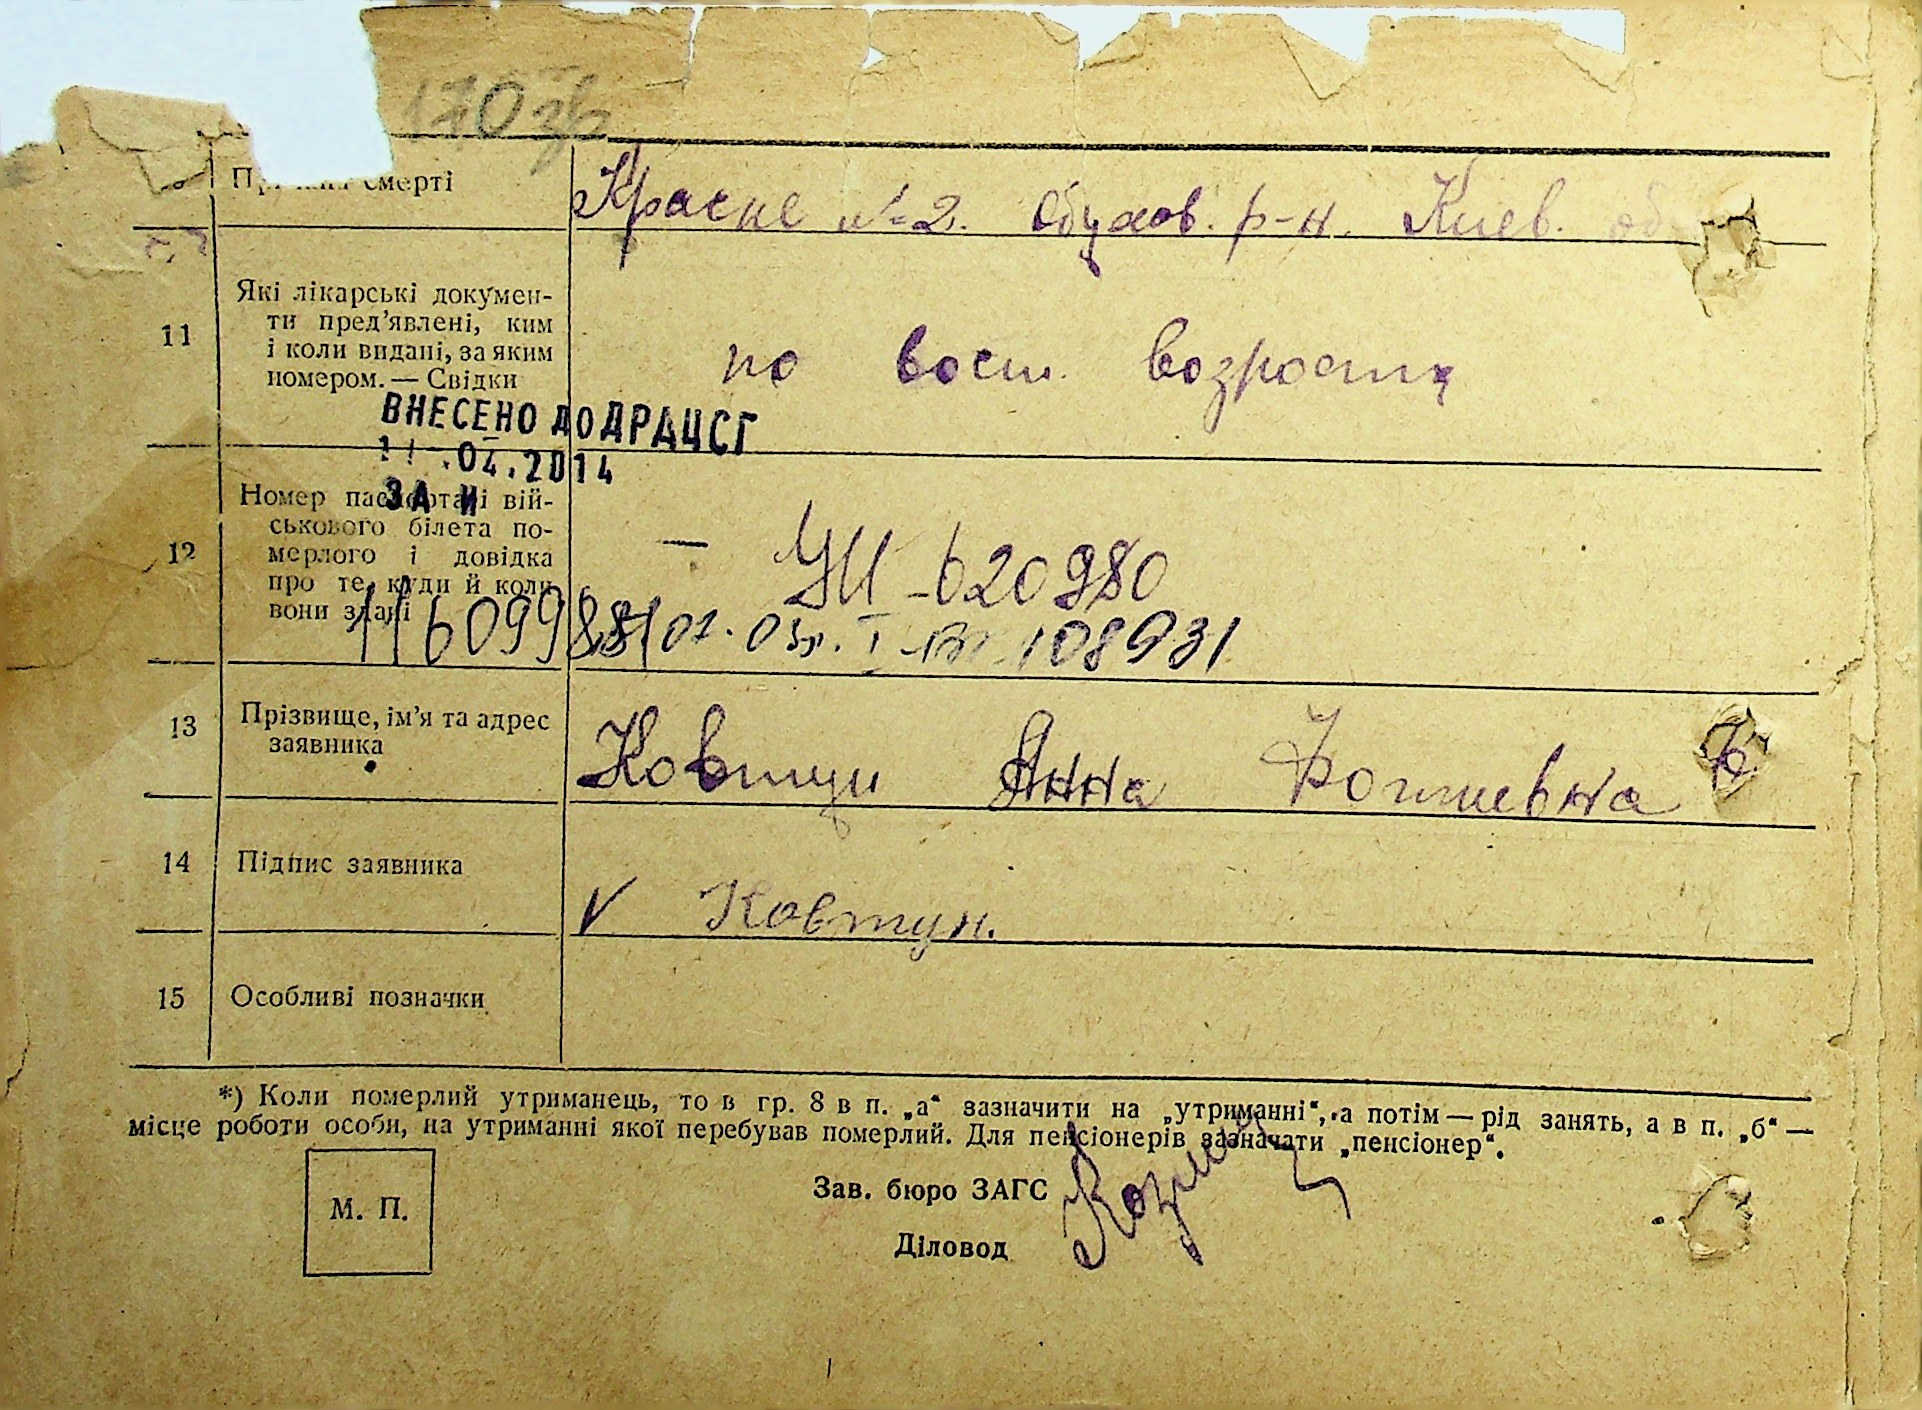 170 зв
смерті
Краске №2. Обухов. р-н. Киев. об
11
Які лікарські докумен-
ти пред'явлені, ким
і коли видані, за яким
номером. — Свідки
по восст. возрасту
ВНЕСЕНО ДО ДРАЦСГ
.04.2014
ЗА №
12
Номер паспорта і вій-
ськового білета по-
мерлого і довідка
про те, куди й коли
вони здані
— УИ - 620980
108931
13
Прізвище, ім'я та адрес
заявника
Ковтун Анна
14
Підпис заявника
V Ковтун.
15
Особливі позначки
*) Коли померлий утриманець, то в гр. 8 в п. „а“ зазначити на „утриманні“, а потім — рід занять, а в п. „б“ —
місце роботи особи, на утриманні якої перебував померлий. Для пенсіонерів зазначати „пенсіонер“.
М. П.
Зав. бюро ЗАГС
Діловод